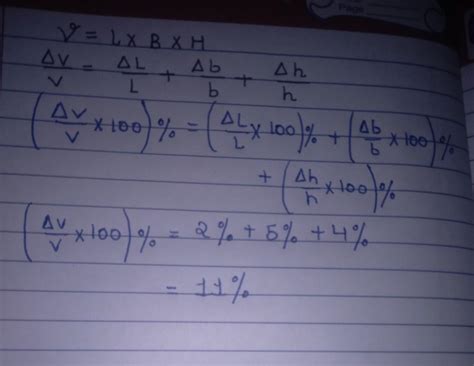 Page
V = L X B X H
ΔV/V = ΔL/L + Δb/b + Δh/h
(ΔV/V × 100)% = (ΔL/L × 100)% + (Δb/b × 100)%
+ (Δh/h × 100)%
(ΔV/V × 100)% = 2% + 5% + 4%
= 11%